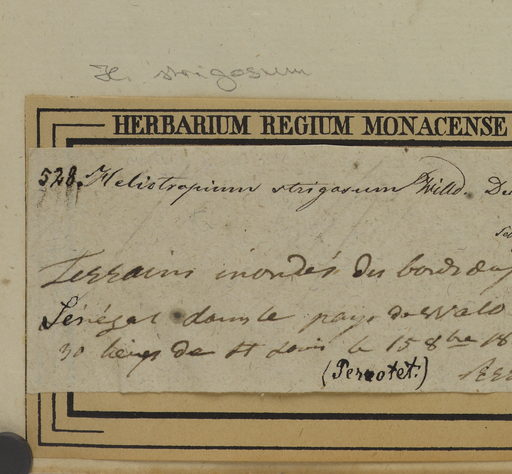 H. strigosum
HERBARIUM REGIUM MONACENSE
528. Heliotropium strigosum Willd. De
Terrains inondés du bord du
Sénégal dans le pays de Walo
30 lieues de St Louis le 15 8bre 18
(Perrotet.)